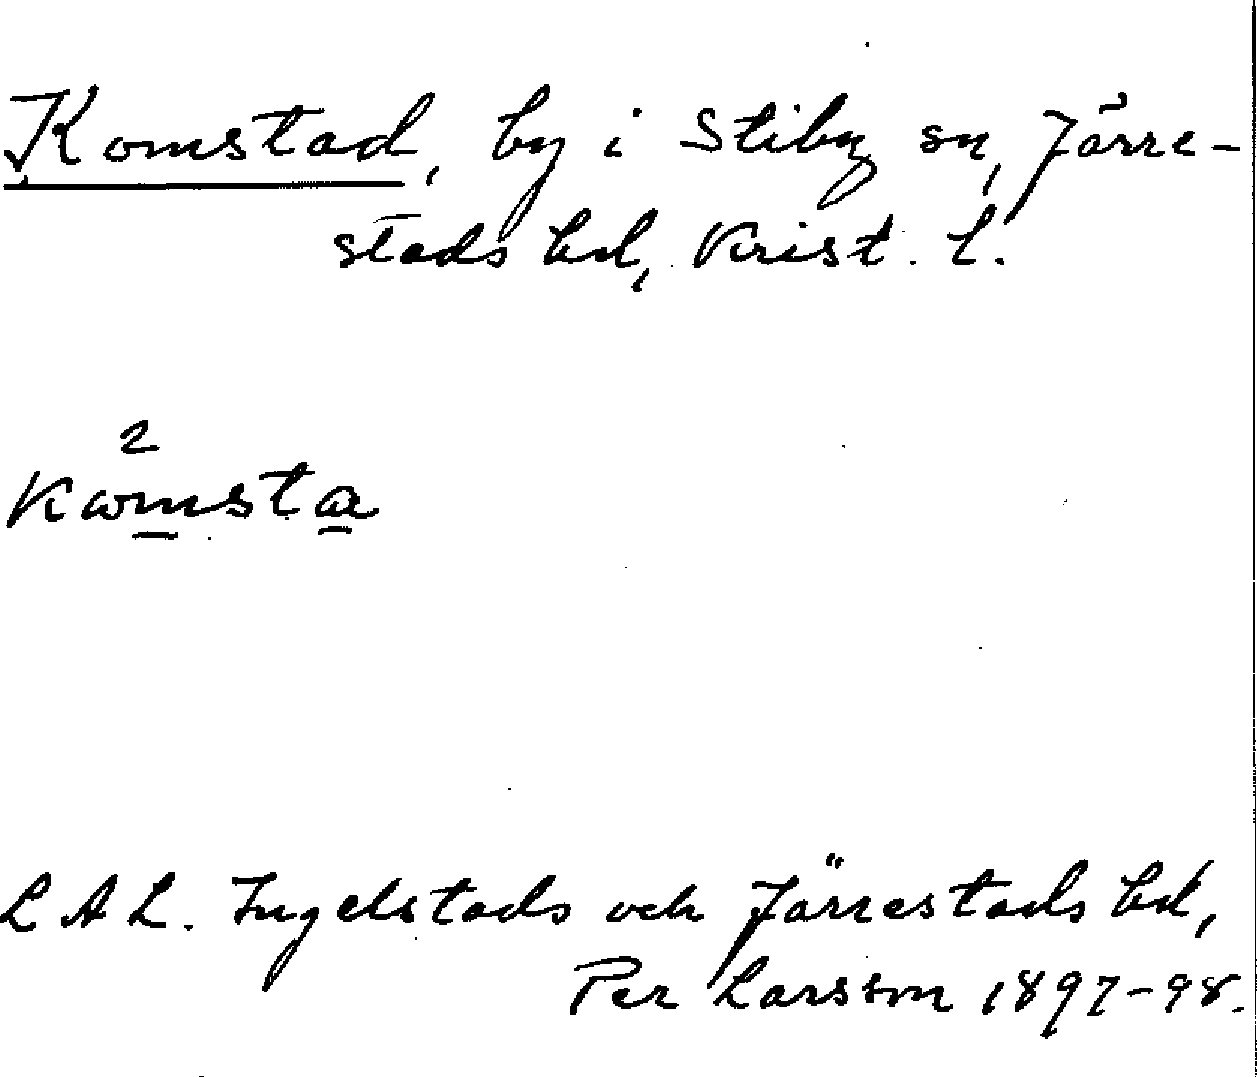 Komstad, by i Stiby sn, Järre-
stads hd, Krist. l.
2
Komsta
LAL. Ingelstads och Järrestads hd,
Per Larsson 1897-98.